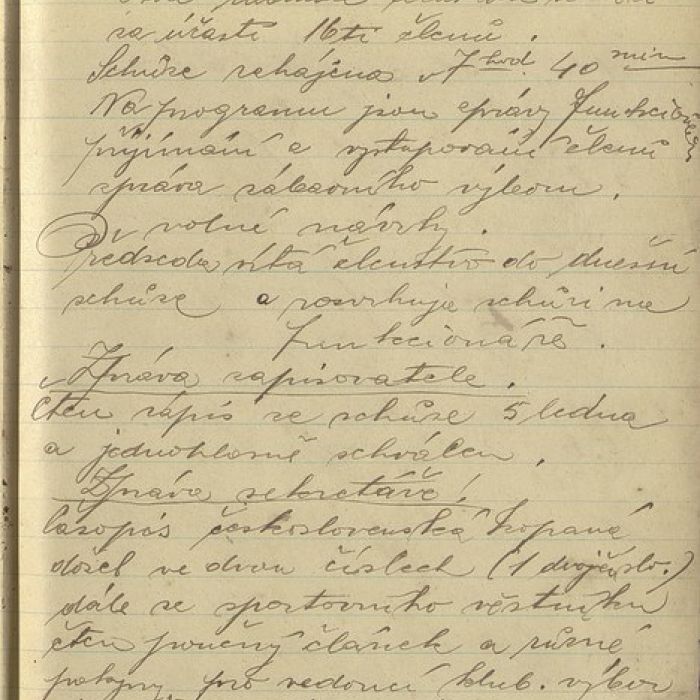 za účasti 16ti členů.
Schůze zahájena v 7 hod. 40 min
Na programu jsou zprávy funkcionářů
přijímání a vystupování členů
zpráva zábavního výboru.
volné návrhy.
Předseda vítá členstvo do dnešní
schůze a rozvrhuje schůzi na
funkcionáře.
Zpráva zapisovatele.
čten zápis ze schůze 5 ledna
a jednohlasně schválen.
Zpráva sekretáře!
časopis československá kopaná
došel ve dvou číslech (1 dvojčíslo.)
dále ze sportovního věstníku
čten poučný článek a různé
pokyny pro vedoucí klub. výbor